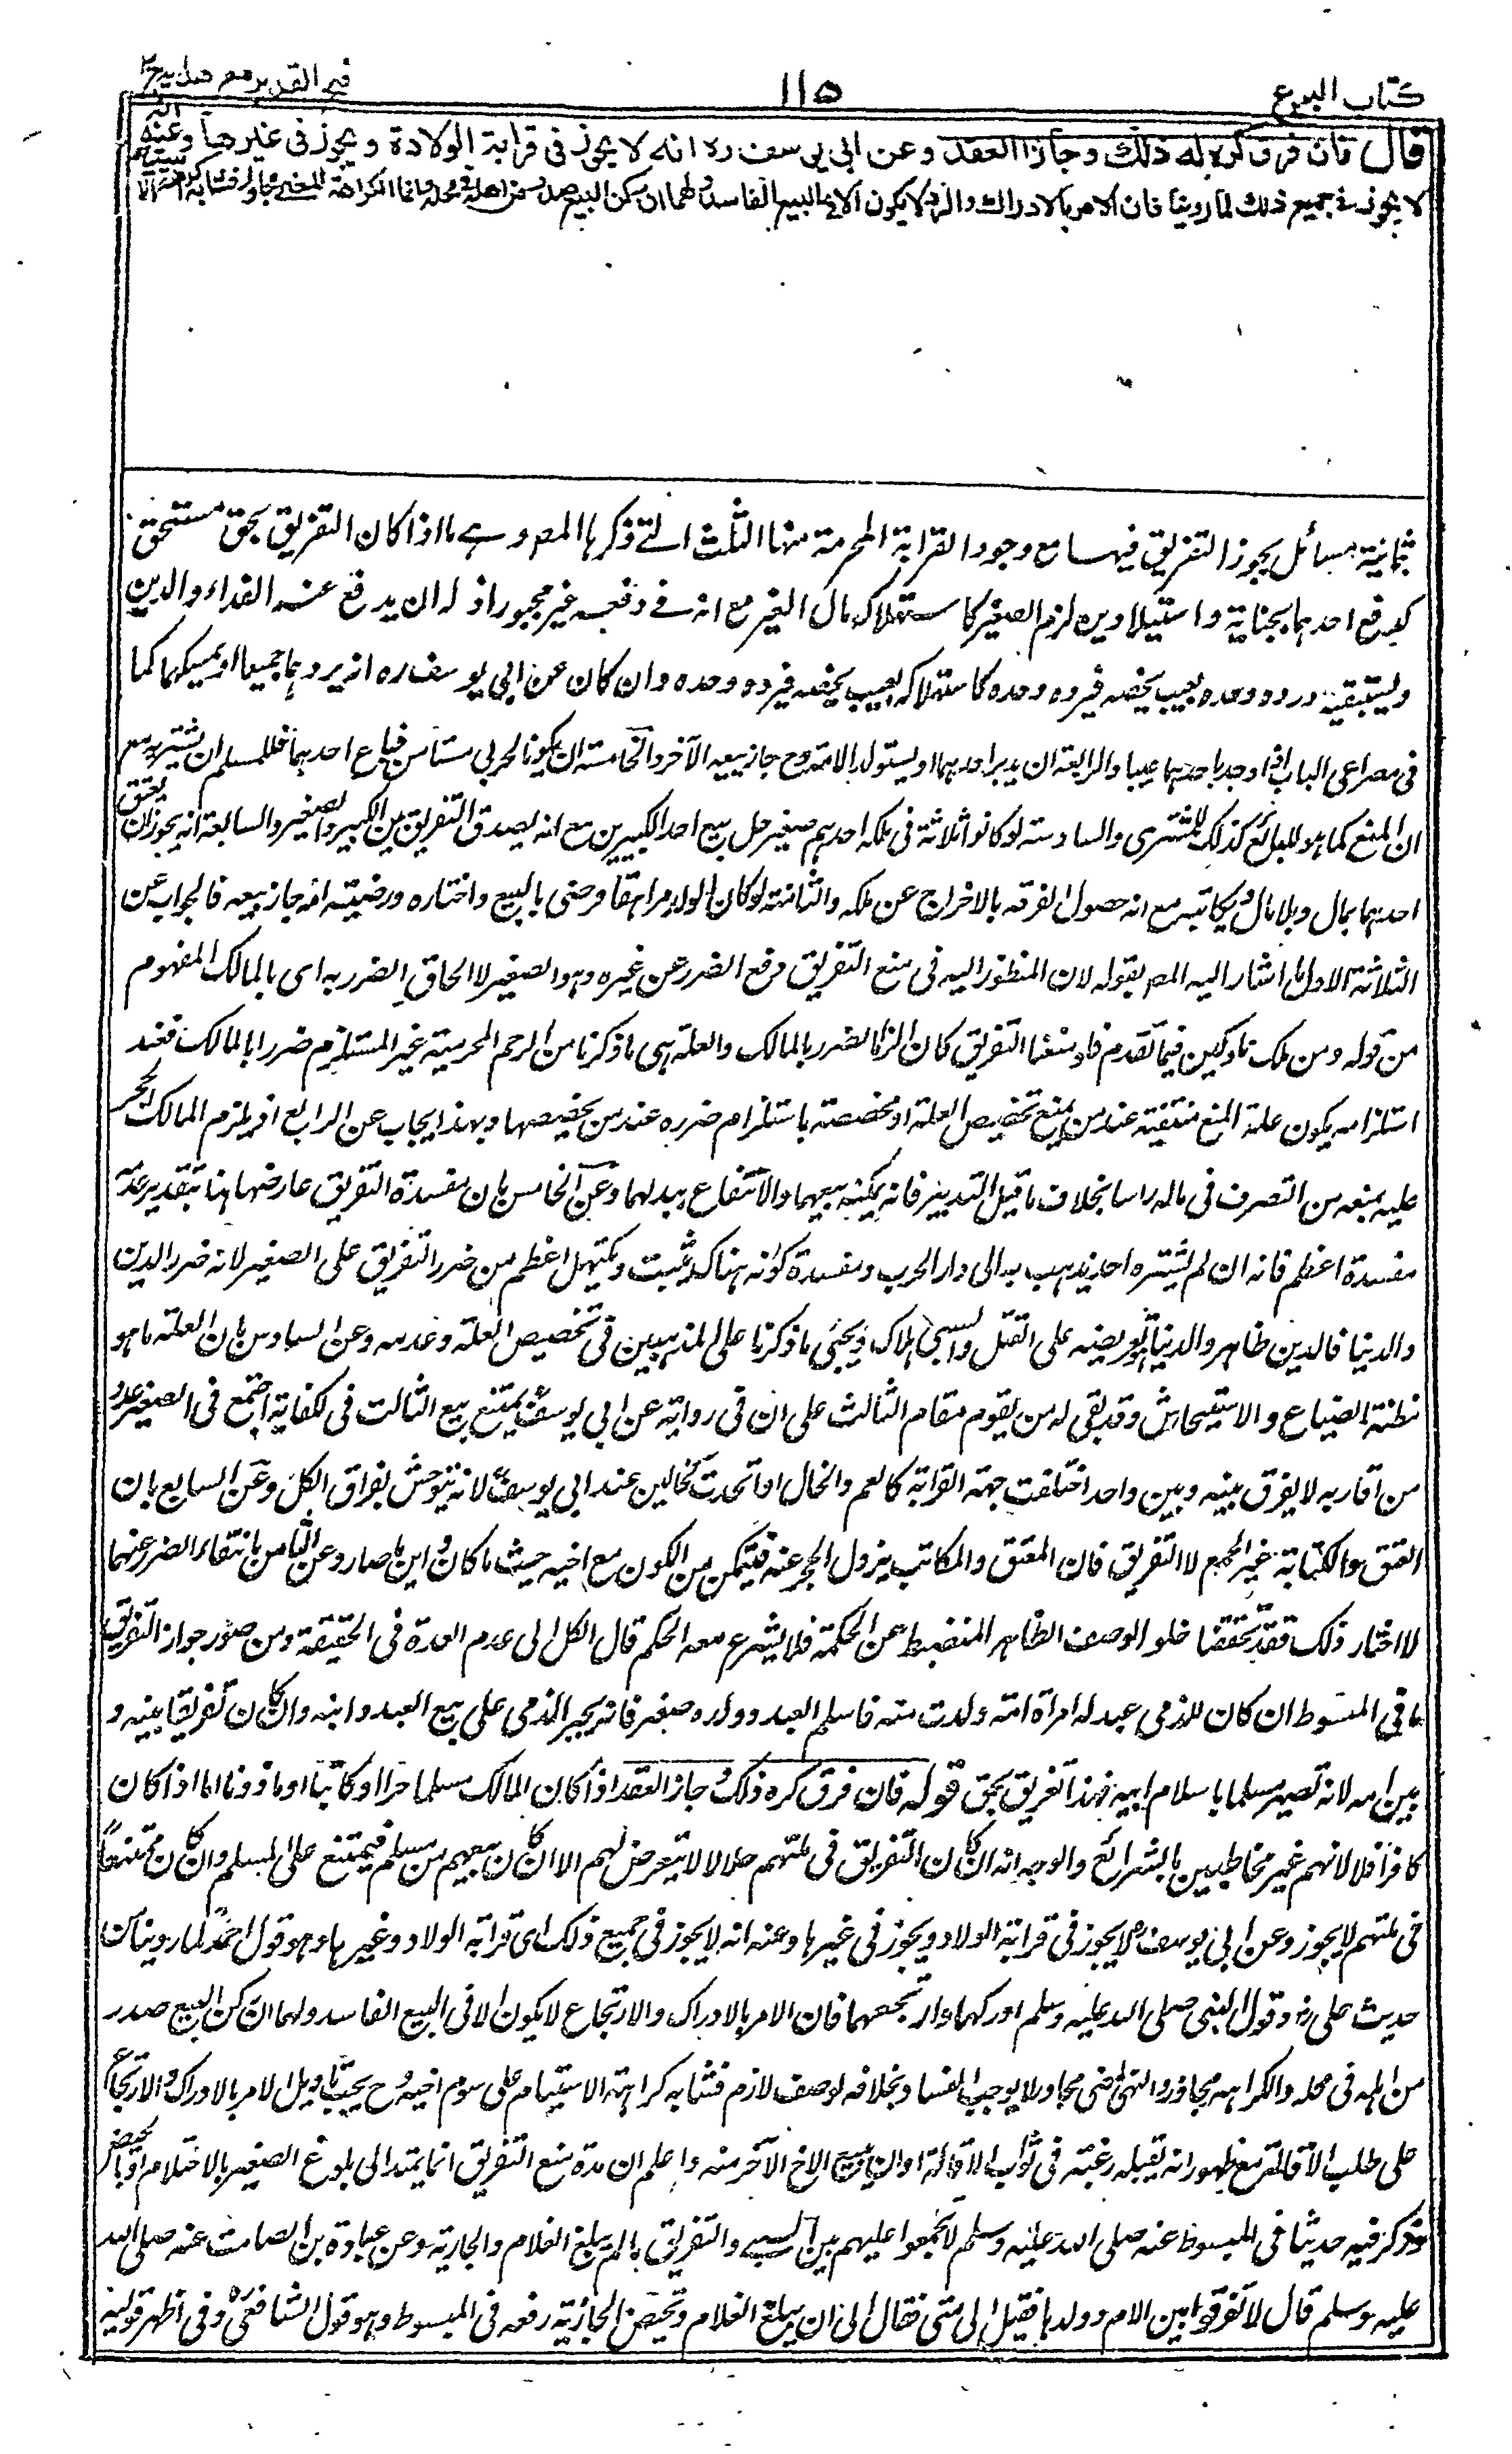 كتاب البيوع
١١٥
فتح القدير مع هدايه ج ٢
قال فان فرق كره له ذلك وجاز العقد وعن ابي يوسف ره انه لا يجوز في قرابة الولادة ويجوز في غيرها وعنه انه
لا يجوز في جميع ذلك لما روينا فان الامر بالادراك والرد لا يكون الا في البيع الفاسد ولهما ان ركن البيع صدر من اهله في محله وانما الكراهة لمعنى مجاور فشابه كراهة الاستيام
ثمانية مسائل يجوز التفريق فيها مع وجود القرابة المحرمة منها الثلث التے ذكرها المصـ وہے ما اذا كان التفريق بحق مستحق
كدفع احدهما بجناية واستيلاد دين لزم الصغير كاستهلاكه مال الغير مع انه فے دفعه غير مجبور اذ له ان يدفع عنه الفداء والدين
ويستبقيه ورده وحده بعيب يخصه فيرده وحده كاستهلاكه بعيب يخصه فيرده وحده وان كان عن ابي يوسف ره انه يردهما جميعا او يمسكهما كما
في مصراعي الباب اذا وجد باحدهما عيبا والرابعة ان يدبر احدهما او يستولد الامة وح جاز بيعه الآخر والخامسة ان يكونا لحربي مستأمن فباع احدهما فللمسلم ان يشتريه مع
ان المنع كما هو للبائع كذلك للمشترى والسادسة لو كانوا ثلاثة في ملكه احدهم صغير حل بيع احد الكبيرين مع انه يصدق التفريق بين الكبير والصغير والسابعة انه يجوز ان يعتق
احدهما بمال وبلا مال ويكاتبه مع انه حصول الفرقة بالاخراج عن ملكه والثامنة لو كان الولد مراهقا فرضي بالبيع واختاره ورضيته امه جاز بيعه فالجواب عن
الثلاثة الاول ما اشار اليه المصـ بقوله لان المنظور اليه في منع التفريق دفع الضرر عن غيره وهو الصغير لا الحاق الضرر به اى بالمالك المفهوم
من قوله ومن ملك مملوكين فيما تقدم فلو منعنا التفريق كان الزاما لضرر بالمالك والعلة هي ما ذكرنا من الرحم المحرمية غير المستلزم ضررا بالمالك فعند
استلزامه يكون علة المنع منتفية عند من يمنع تخصيص العلة او مخصصة باستلزام ضرره عند من يخصصها وبهذا يجاب عن الرابع اذ يلزم المالك الحجر
عليه بمنعه من التصرف في ماله راسا بخلاف ما قبل التدبير فانه يمكنه بيعهما والانتفاع ببدلهما وعن الخامس بان مفسدة التفريق عارضها هنا بتقدير عدمه
مفسدة اعظم فانه ان لم يشتره احد يذهب به الى دار الحرب ومفسدة كونه هناك يثبت ويكتهل اعظم من ضرر التفريق على الصغير لانه ضرر الدين
والدنيا فالدين ظاهر والدنيا تعريضه على القتل والسبي والهلاك ويجئ ما ذكرنا على المذهبين في تخصيص العلة وعدمه وعن السادس بان العلة ما هو
مظنة الضياع والاستيحاش وقد بقي له من يقوم مقام الثالث على ان في رواية عن ابي يوسف يمتنع بيع الثالث في الكفاية اجتمع في الصغير عدد
من اقاربه لا يفرق بينه وبين واحد اختلفت جهة القرابة كالعم والخال او اتحدت كخالين عند ابي يوسف لانه يتوحش بفراق الكل وعن السابع بان
العتق والكتابة غير الجمع لا التفريق فان المعتق والمكاتب يزول الحجر عنه فيتمكن من الكون مع اخيه حيث ما كان واين ما صار وعن الثامن بانتفاء الضرر عنهما
لا اختار ذلك فقد تحققنا خلو الوصف الظاهر المنضبط عن الحكمة فلا يشرع معه الحكم قال الكل الى عدم العدة في الحقيقة ومن صور جواز التفريق
ما في المبسوط ان كان للذمي عبد له امراة امة ولدت منه فاسلم العبد وولده صغير فانه يجبر الذمي على بيع العبد وابنه وان كان تفريقا بينه و
بين امه لانه تصير مسلما باسلام ابيه فهذا تفريق بحق قوله فان فرق كره ذلك وجاز العقد اذا كان المالك مسلما حرا او مكاتبا او ماذونا اما اذا كان
كافرا فلا لانهم غير مخاطبين بالشرائع والوجه انه ان كان التفريق في ملتهم حلالا لا يتعرض لهم الا ان كان بيعهم من مسلم فيمتنع على المسلم وان كان ممتنعا
في ملتهم لا يجوز وعن ابي يوسف ره لا يجوز في قرابة الولاد ويجوز في غيرها وعنه انه لا يجوز في جميع ذلك اى قرابة الولاد وغيرها وهو قول احمد لما روينا من
حديث على رضـ وقول النبي صلى الله عليه وسلم ادركهما وارتجعهما فان الامر بالادراك والارتجاع لا يكون الا في البيع الفاسد ولهما ان ركن البيع صدر
من اهله في محله والكراهية مجاور والنهى لمعنى مجاور لا يوجب الفساد بخلافه لوصف لازم فشابه كراهة الاستيام على سوم اخيه وح يجب تاويل الامر بالادراك والارتجاع
على طلب الاقالة مع ظهور انه يقبله رغبة في ثواب الاقالة او ان يبيع الاخ الآخر منه واعلم ان مدة منع التفريق انما يمتد الى بلوغ الصغير بالاحتلام او بالحيض
وذكر فيه حديثا في المبسوط عنه صلى الله عليه وسلم لا تجمعوا عليهم بين السبے والتفريق ما لم يبلغ الغلام والجارية وعن عبادة بن الصامت عنه صلى الله
عليه وسلم قال لا تفرقوا بين الام وولدها فقيل الى متى فقال الى ان يبلغ الغلام وتحيض الجارية رفعه في المبسوط وهو قول الشافعى وفى اظهر قوليه